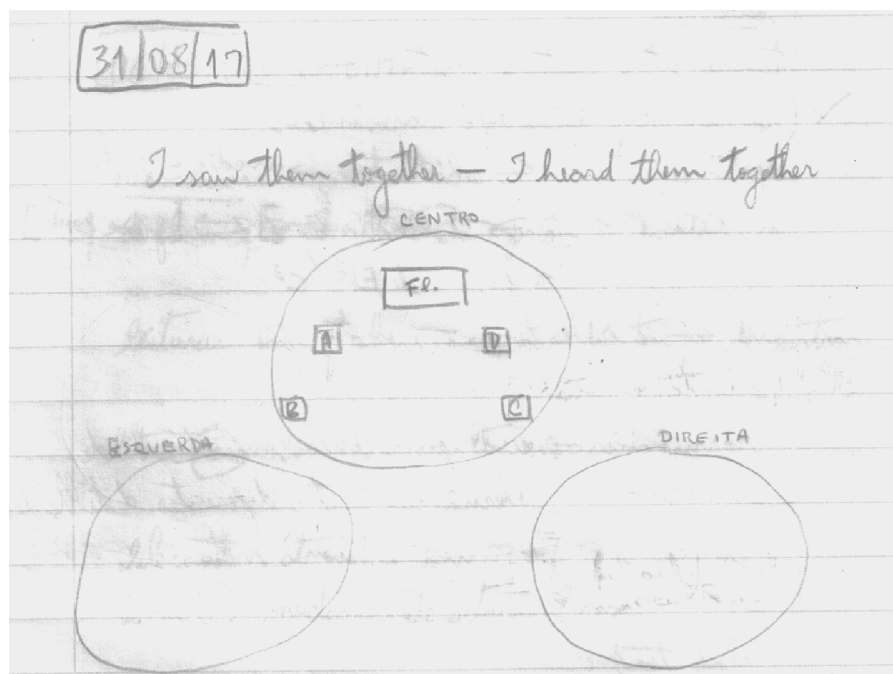 31/08/17
I saw them together — I heard them together
CENTRO
Fl.
A D
B C
ESQUERDA DIREITA